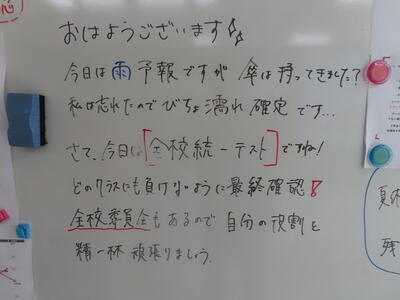 おはようございます
今日は雨予報ですが 傘は持ってきました?
私は忘れたのでびちょ濡れ確定です...
さて、今日は[全校統一テスト]ですね!
どのクラスにも負けないように最終確認!
全校委員会もあるので自分の役割を
精一杯頑張りましょう.